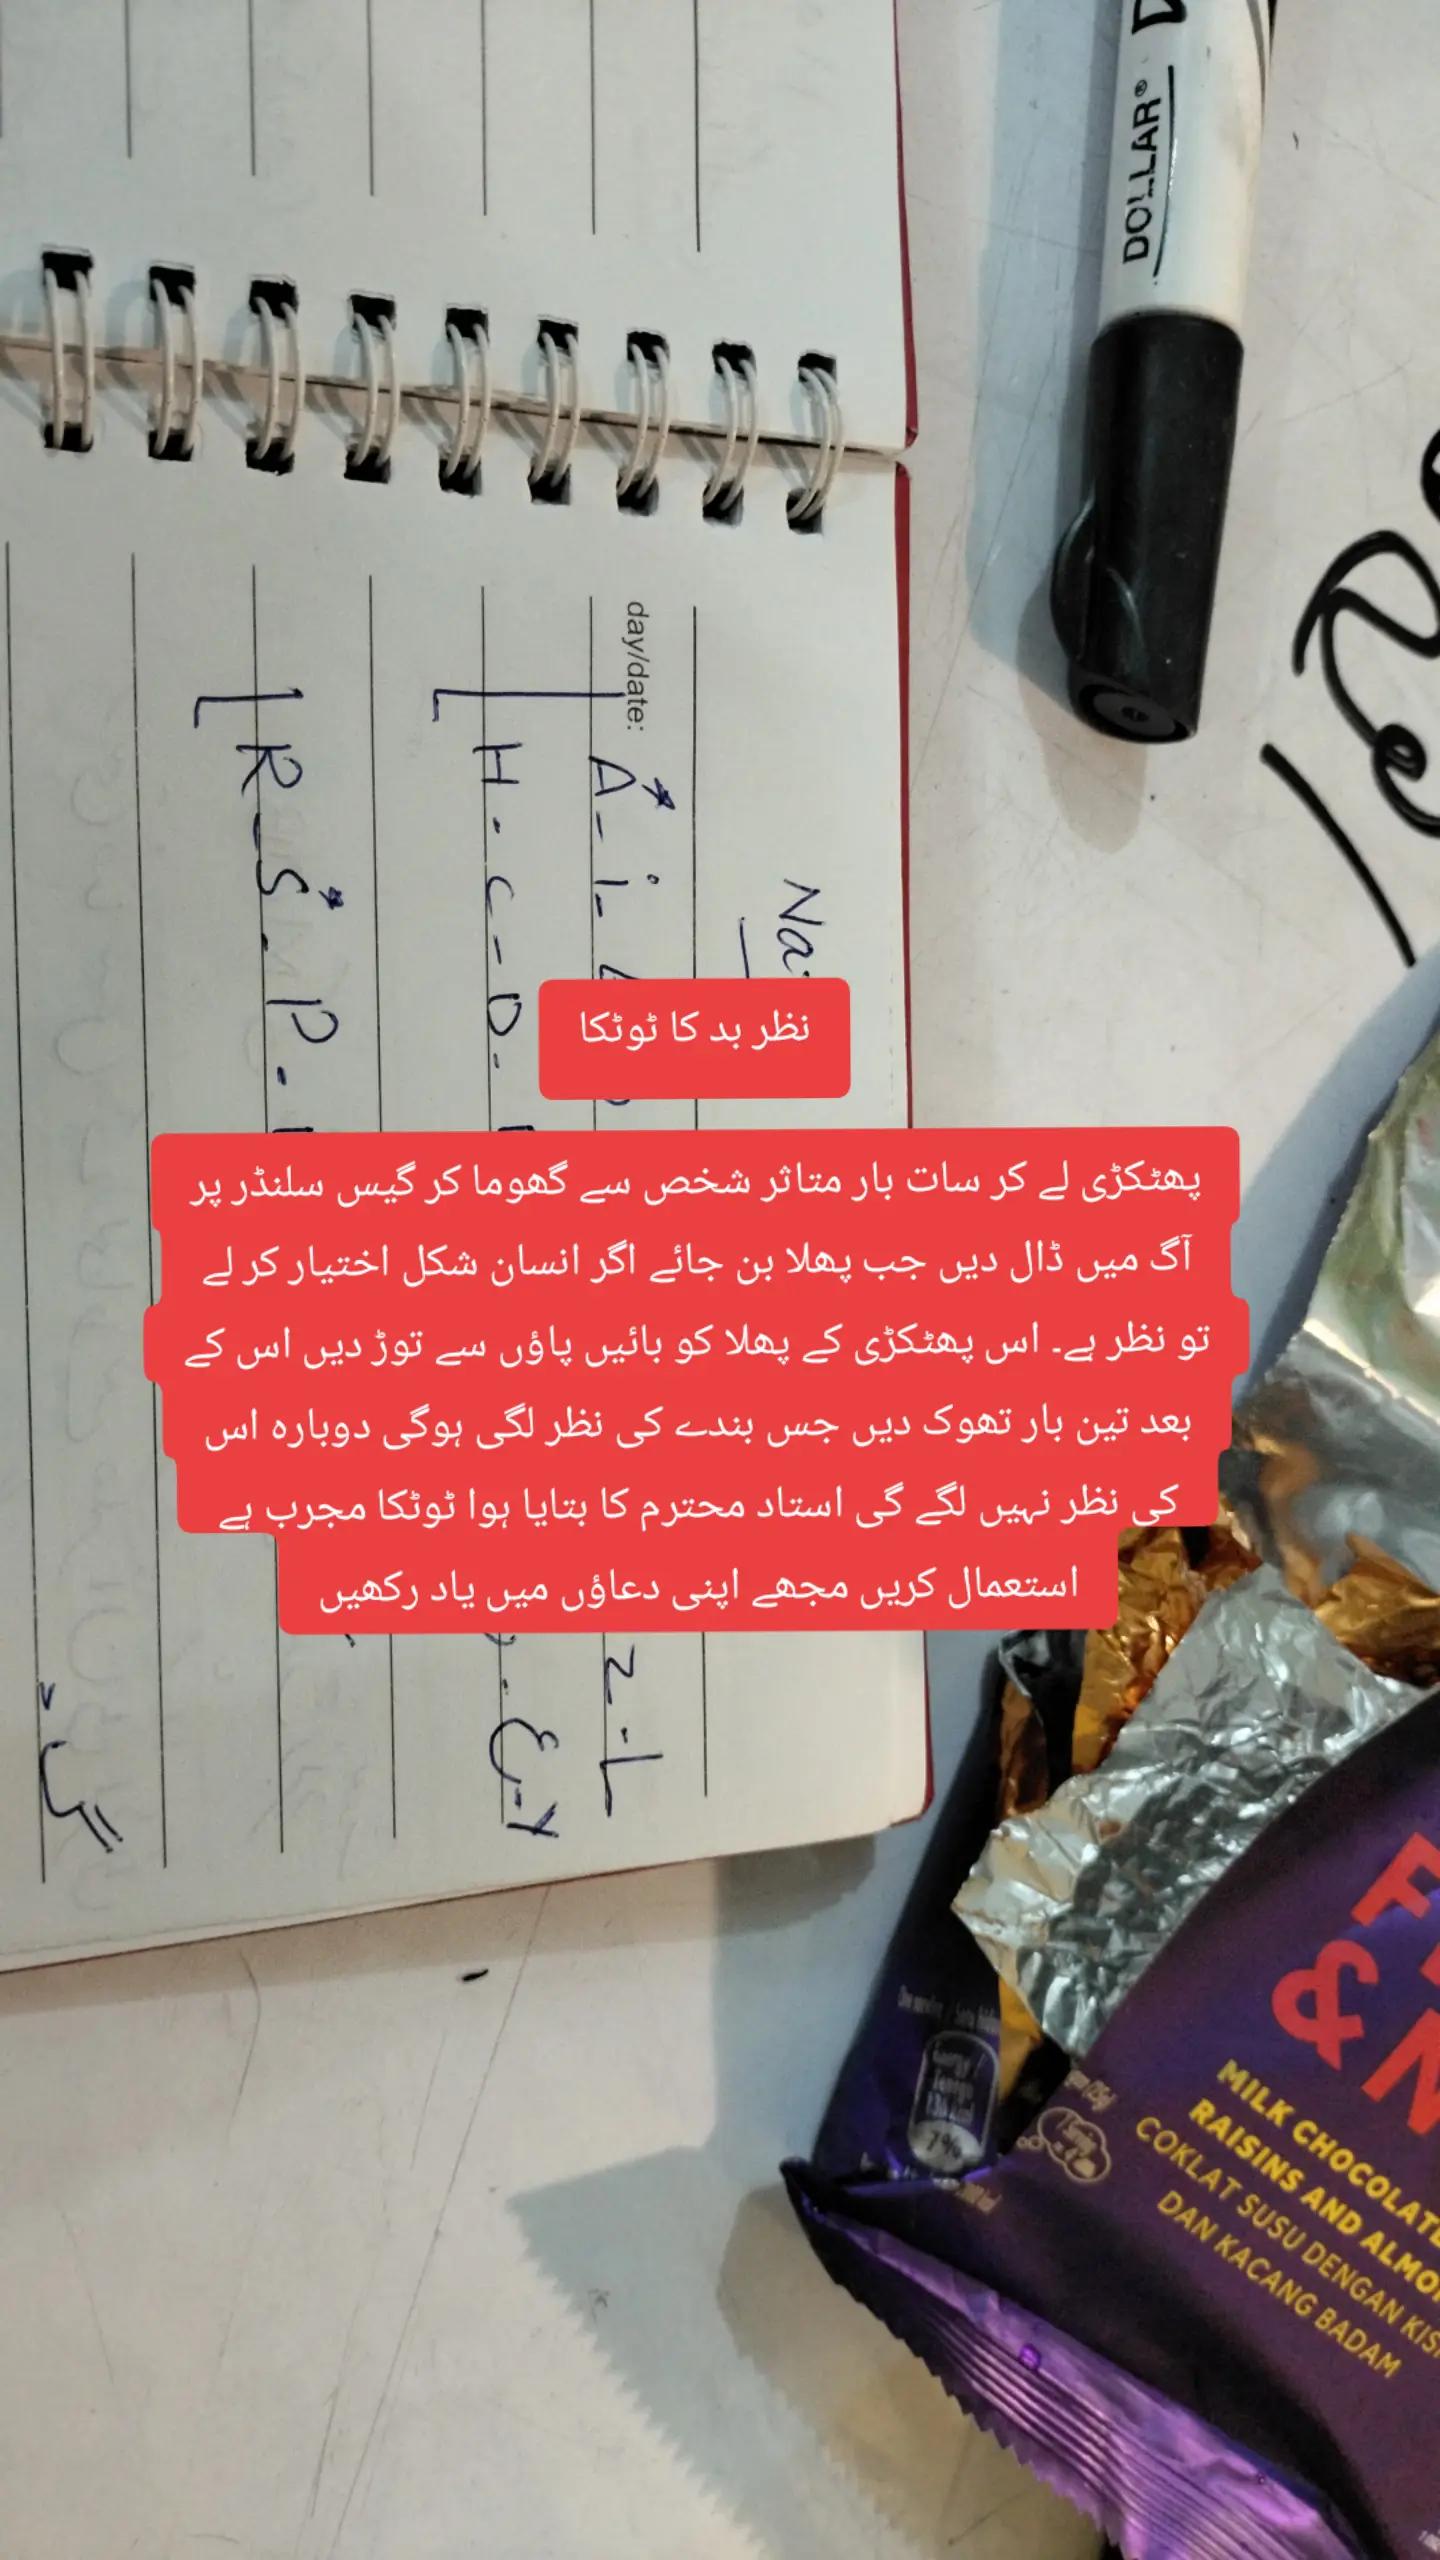 نظر بد کا ٹوٹکا
پھٹکڑی لے کر سات بار متاثر شخص سے گھوما کر گیس سلنڈر پر
آگ میں ڈال دیں جب پھلا بن جائے اگر انسان شکل اختیار کر لے
تو نظر ہے۔ اس پھٹکڑی کے پھلا کو بائیں پاؤں سے توڑ دیں اس کے
بعد تین بار تھوک دیں جس بندے کی نظر لگی ہوگی دوبارہ اس
کی نظر نہیں لگے گی استاد محترم کا بتایا ہوا ٹوٹکا مجرب ہے
استعمال کریں مجھے اپنی دعاؤں میں یاد رکھیں
DOLLAR®
day/date:
A - i -
H - c - D -
R - S - P -
Z - L
&
MILK CHOCOLATE
RAISINS AND
COKLAT SUSU DENGAN
DAN KACANG BADAM